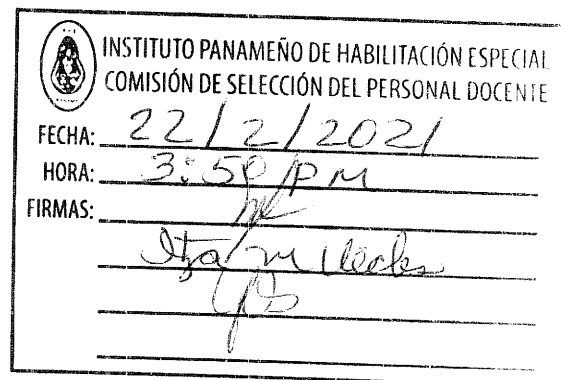 INSTITUTO PANAMEÑO DE HABILITACIÓN ESPECIAL
COMISIÓN DE SELECCIÓN DEL PERSONAL DOCENTE
FECHA: 22/2/2021
HORA: 3:50 PM
FIRMAS:
Itza M